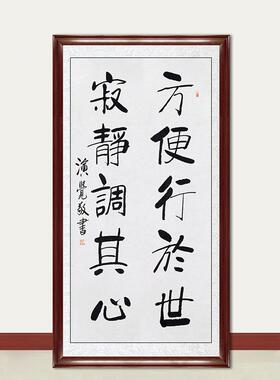 方便行於世
寂靜調其心
演覺敬書